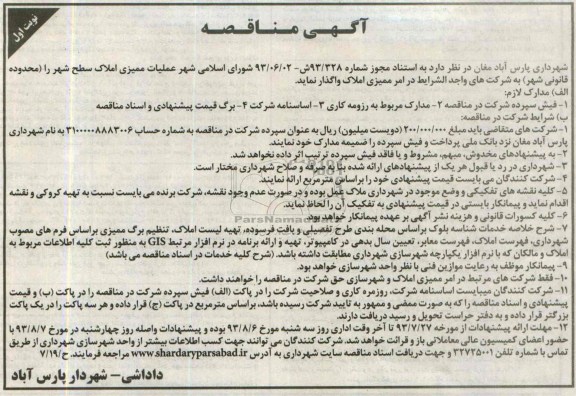 آگهی مناقصه
نوبت اول
شهرداری پارس آباد مغان در نظر دارد به استناد مجوز شماره ۹۳/۳۲۸ش- ۹۳/۰۶/۰۲ شورای اسلامی شهر عملیات ممیزی املاک سطح شهر را (محدوده
قانونی شهر) به شرکت های واجد الشرایط در امر ممیزی املاک واگذار نماید.
الف) مدارک لازم:
۱- فیش سپرده شرکت در مناقصه ۲- مدارک مربوط به رزومه کاری ۳- اساسنامه شرکت ۴- برگ قیمت پیشنهادی و اسناد مناقصه
ب) شرایط شرکت در مناقصه:
۱- شرکت های متقاضی باید مبلغ ۲۰۰/۰۰۰/۰۰۰ (دویست میلیون) ریال به عنوان سپرده شرکت در مناقصه به شماره حساب ۳۱۰۰۰۰۰۸۸۸۳۰۰۶ به نام شهرداری
پارس آباد مغان نزد بانک ملی پرداخت و فیش سپرده را ضمیمه مدارک خود نمایند.
۲- به پیشنهادهای مخدوش، مبهم، مشروط و یا فاقد فیش سپرده ترتیب اثر داده نخواهد شد.
۳- شهرداری در رد یا قبول هر یک از پیشنهادهای ارائه شده بنا به صرفه و صلاح شهرداری مختار است.
۴- شرکت کنندگان می بایست قیمت پیشنهادی خود را براساس مترمربع ارائه نمایند.
۵- کلیه نقشه های تفکیکی و وضع موجود در شهرداری ملاک عمل بوده و در صورت عدم وجود نقشه، شرکت برنده می بایست نسبت به تهیه کروکی و نقشه
اقدام نماید و پیمانکار بایستی در قیمت پیشنهادی به تفکیک آن را لحاظ نماید.
۶- کلیه کسورات قانونی و هزینه نشر آگهی بر عهده پیمانکار خواهد بود.
۷- شرح خلاصه خدمات شناسه بلوک براساس محله بندی طرح تفصیلی و بافت فرسوده، تهیه لیست املاک، تنظیم برگ ممیزی براساس فرم های مصوب
شهرداری، فهرست املاک، فهرست معابر، تعیین سال بدهی در کامپیوتر، تهیه و ارائه برنامه در نرم افزار مرتبط GIS به منظور ثبت کلیه اطلاعات مربوط به
املاک و مالکان که با نرم افزار یکپارچه شهرسازی شهرداری مطابقت داشته باشد. (شرح کلیه خدمات در اسناد مناقصه می باشد)
۹- پیمانکار موظف به رعایت موازین فنی با نظر واحد شهرسازی خواهد بود.
۱۰- فقط شرکت های مرتبط در امر ممیزی املاک و شهرسازی حق شرکت در مناقصه را خواهند داشت.
۱۱- شرکت کنندگان میبایست اساسنامه شرکت، روزمره کاری و صلاحیت شرکت را در پاکت (الف) فیش سپرده شرکت در مناقصه را در پاکت (ب) و قیمت
پیشنهادی و اسناد مناقصه را که به صورت ممضی و ممهور به تایید شرکت رسیده باشد، براساس مترمربع در پاکت (ج) قرار داده و هر سه پاکت را در یک پاکت
بزرگتر قرار داده و به دفتر حراست تحویل و رسید دریافت دارند.
۱۲- مهلت ارائه پیشنهادات از مورخه ۹۳/۷/۲۷ تا آخر وقت اداری روز سه شنبه مورخ ۹۳/۸/۶ بوده و پیشنهادات واصله روز چهارشنبه در مورخ ۹۳/۸/۷ با
حضور اعضای کمیسیون عالی معاملاتی باز و قرائت خواهد شد. شرکت کنندگان می توانند جهت کسب اطلاعات بیشتر از واحد شهرسازی شهرداری از طریق
تماس با شماره تلفن ۳۲۷۲۵۰۰۱ و جهت دریافت اسناد مناقصه سایت شهرداری به آدرس www.shardaryparsabad.ir مراجعه فرمایند. ح/۷/۱۹
داداشی- شهردار پارس آباد